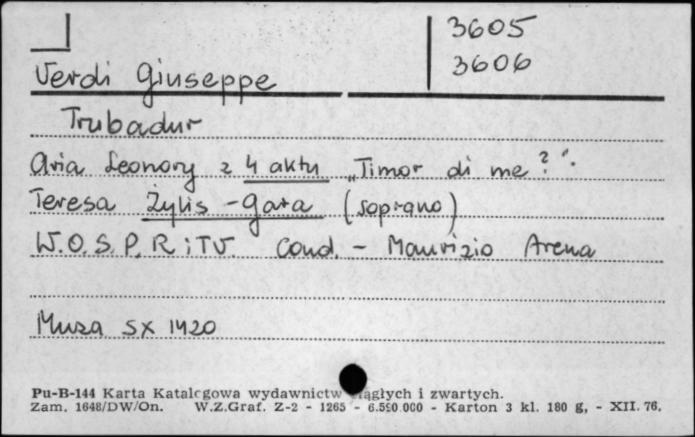 3605
3606
Verdi Giuseppe
Trubadur
Aria Leonory z 4 aktu „Timor di me?".
Teresa Żylis-Gara (sopran)
W.O.S.P.R i TV. Cond. - Maurizio Arena
Muza SX 1420
Pu-B-144 Karta Katalogowa wydawnictw ciągłych i zwartych.
Zam. 1648/DW/On. W.Z.Graf. Z-2 - 1265 - 6.590.000 - Karton 3 kl. 180 g, - XII. 76.